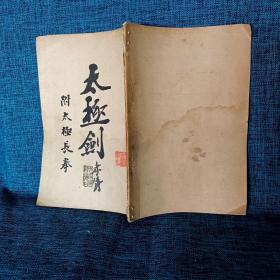 太極劍
附太極長拳